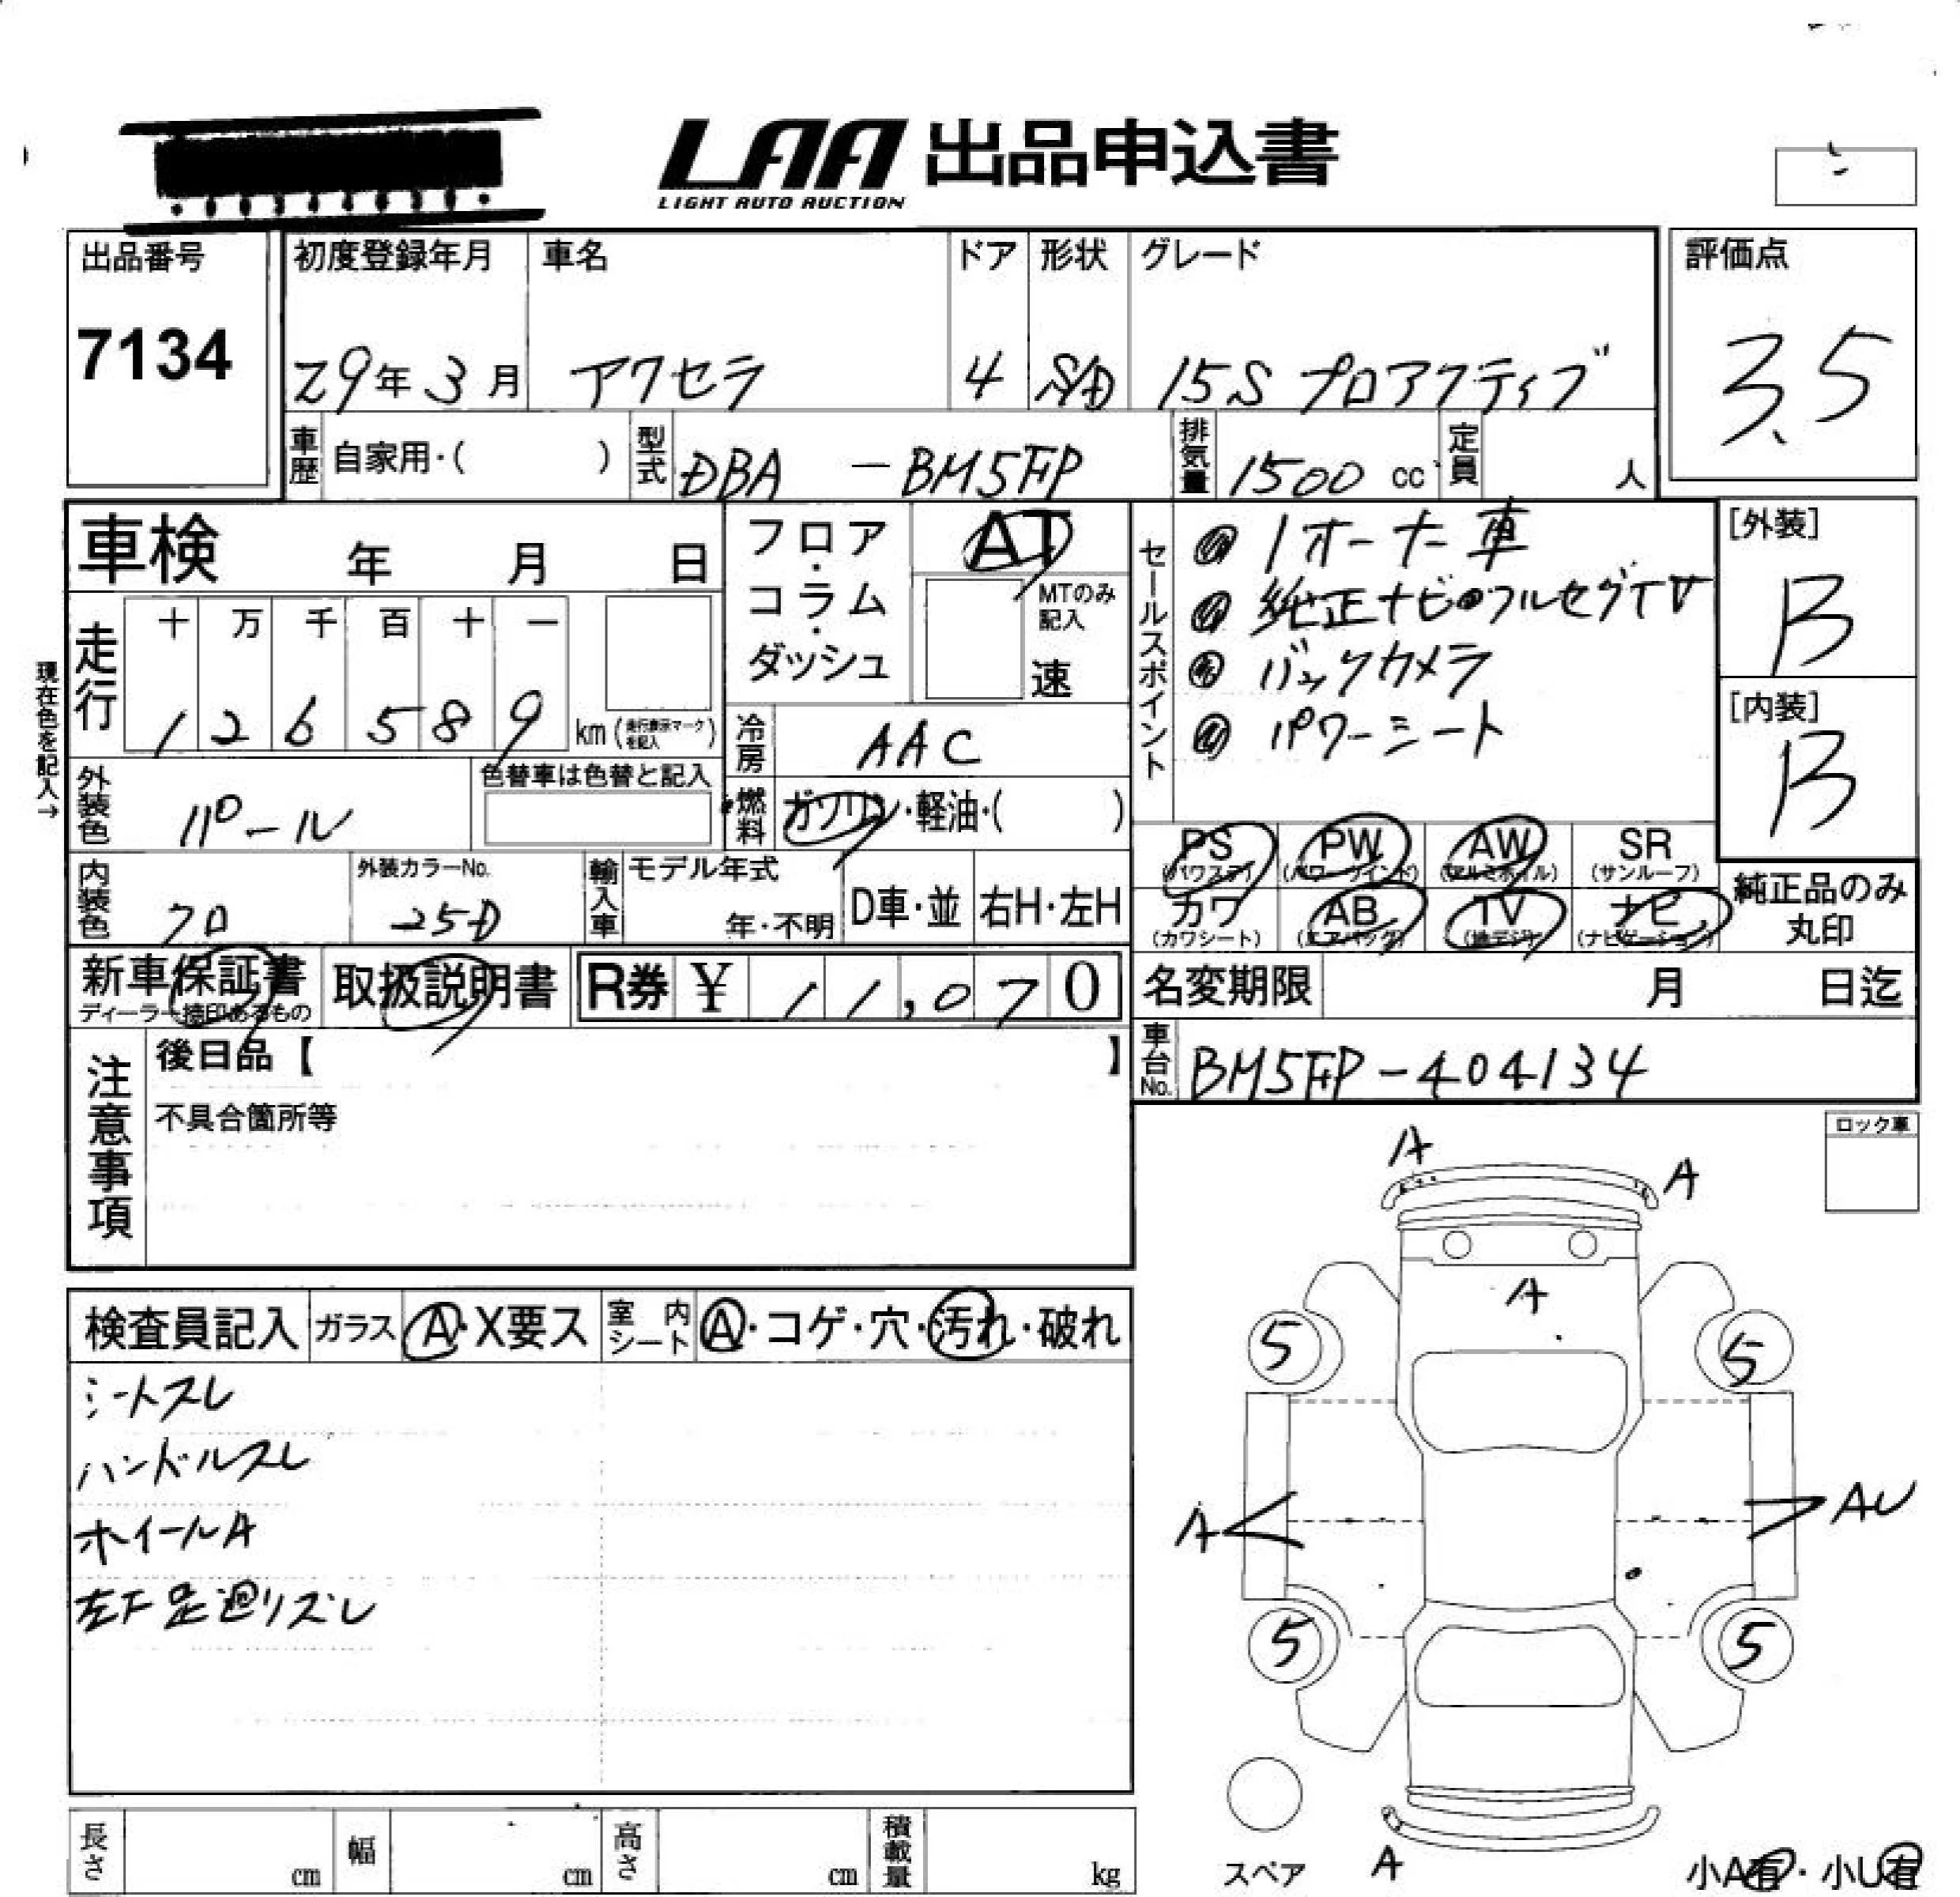 LAA 出品申込書
LIGHT AUTO AUCTION
出品番号
7134
初度登録年月 車名 ドア 形状 グレード
29年 3月 アクセラ 4 S/D 15S プロアクティブ
評価点
3.5
車歴 自家用・( ) 型式 DBA - BM5FP 排気量 1500 cc 定員 人
車検 年 月 日
フロア・コラム・ダッシュ
AT
MTのみ記入
速
セールスポイント
1オーナー車
純正ナビ フルセグTV
バックカメラ
パワーシート
[外装]
B
[内装]
B
現在色を記入→
走行 十 万 千 百 十 一
1 2 6 5 8 9 km (走行表示マークを記入)
冷房 AAC
外装色 パール
色替車は色替と記入
燃料 ガソリン・軽油・( )
PS (パワステ) PW (パワーウインド) AW (アルミホイル) SR (サンルーフ)
カワ (カワシート) AB (エアバッグ) TV (地デジ) ナビ (ナビゲーション)
純正品のみ丸印
内装色 クロ
外装カラーNo.
25D
輸入車 モデル年式
年・不明 D車・並 右H・左H
新車保証書
ディーラー捺印あるもの
取扱説明書
R券 ¥ 11,070
名変期限 月 日迄
車台No. BM5FP-404134
注意事項
後日品【 】
不具合箇所等
ロック車
A
A
A
5
5
A
AU
5
5
A
スペア
小A有・小U有
検査員記入 ガラス A・X要ス 室内シート A・コゲ・穴・汚れ・破れ
シートスレ
ハンドルスレ
ホイールA
左下足廻りズレ
長さ cm 幅 cm 高さ cm 積載量 kg